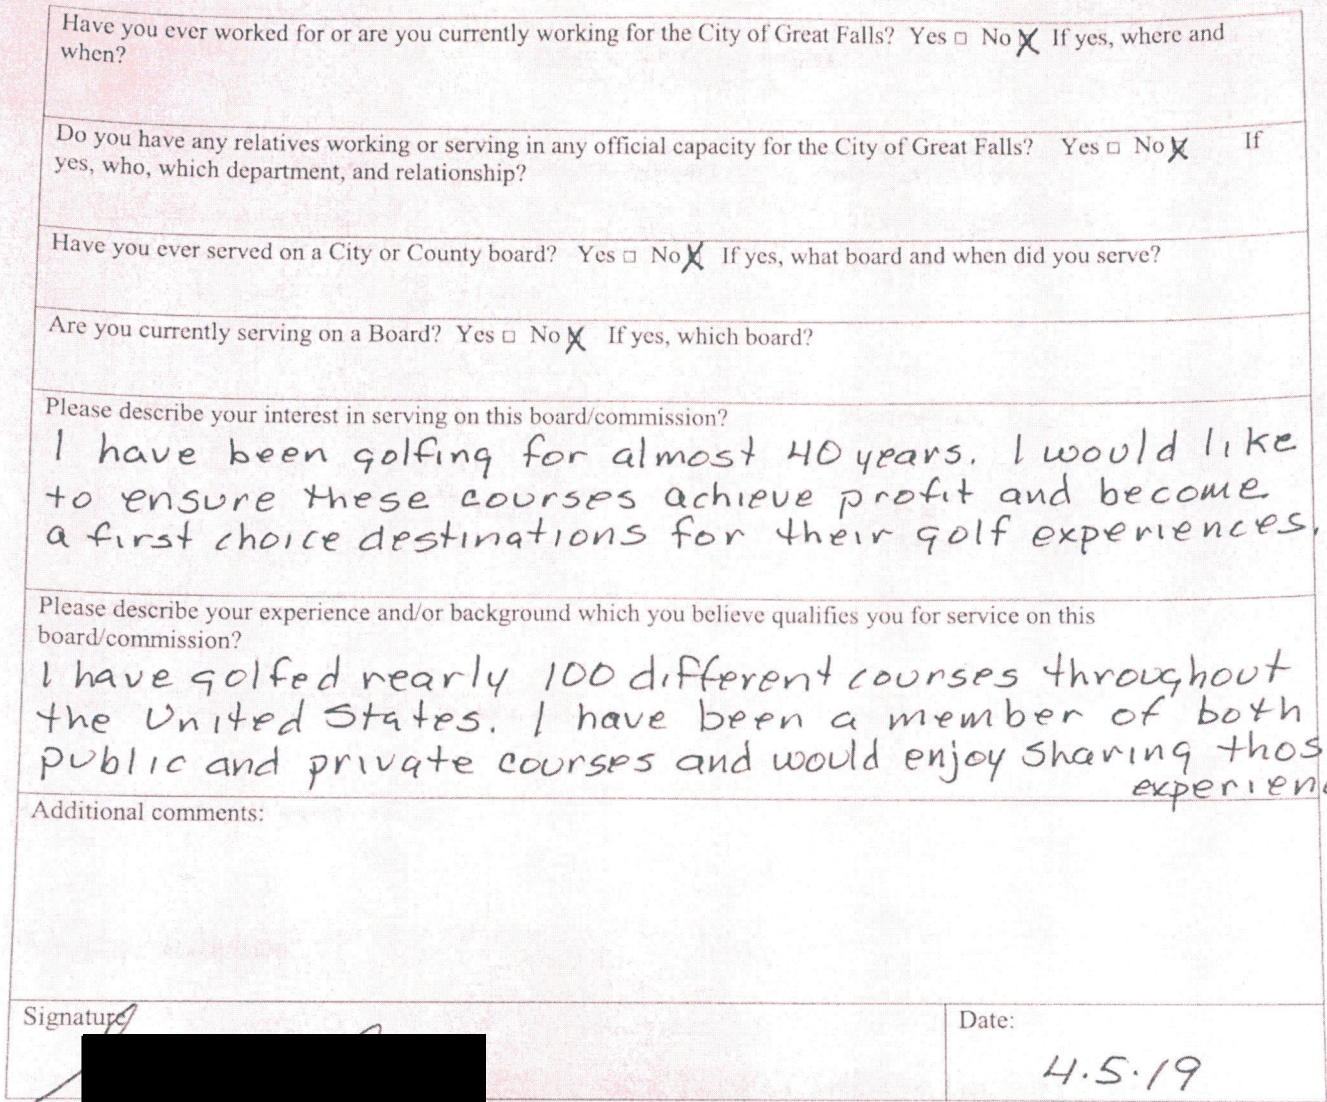 Have you ever worked for or are you currently working for the City of Great Falls? Yes □ No X If yes, where and
when?
Do you have any relatives working or serving in any official capacity for the City of Great Falls? Yes □ No X If
yes, who, which department, and relationship?
Have you ever served on a City or County board? Yes □ No X If yes, what board and when did you serve?
Are you currently serving on a Board? Yes □ No X If yes, which board?
Please describe your interest in serving on this board/commission?
I have been golfing for almost 40 years. I would like
to ensure these courses achieve profit and become
a first choice destinations for their golf experiences.
Please describe your experience and/or background which you believe qualifies you for service on this
board/commission?
I have golfed nearly 100 different courses throughout
the United States. I have been a member of both
public and private courses and would enjoy sharing thos
experienc
Additional comments:
Signature
Date:
4.5.19